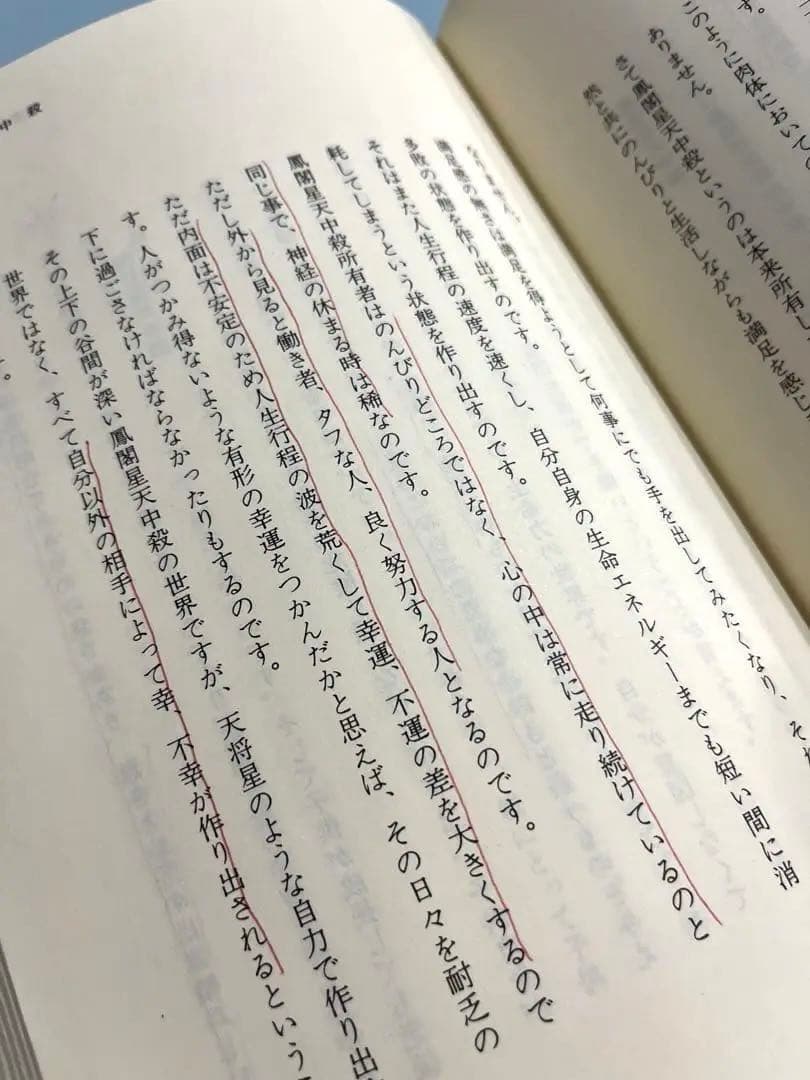 このように肉体においての
ありません。
さて鳳閣星天中殺というのは本来所有し
然と共にのんびりと生活しながらも満足を感じ
満足感の働きは満足を得ようとして何事にでも手を出してみたくなり、それ
多敗の状態を作り出すのです。
それはまた人生行程の速度を速くし、自分自身の生命エネルギーまでも短い間に消
耗してしまうという状態を作り出すのです。
鳳閣星天中殺所有者はのんびりどころではなく、心の中は常に走り続けているのと
同じ事で、神経の休まる時は稀なのです。
ただし外から見ると働き者、タフな人、良く努力する人となるのです。
ただ内面は不安定のため人生行程の波を荒くして幸運、不運の差を大きくするので
す。人がつかみ得ないような有形の幸運をつかんだかと思えば、その日々を耐乏の
下に過ごさなければならなかったりもするのです。
その上下の谷間が深い鳳閣星天中殺の世界ですが、天将星のような自力で作り出
世界ではなく、すべて自分以外の相手によって幸、不幸が作り出されるという
す。
中殺